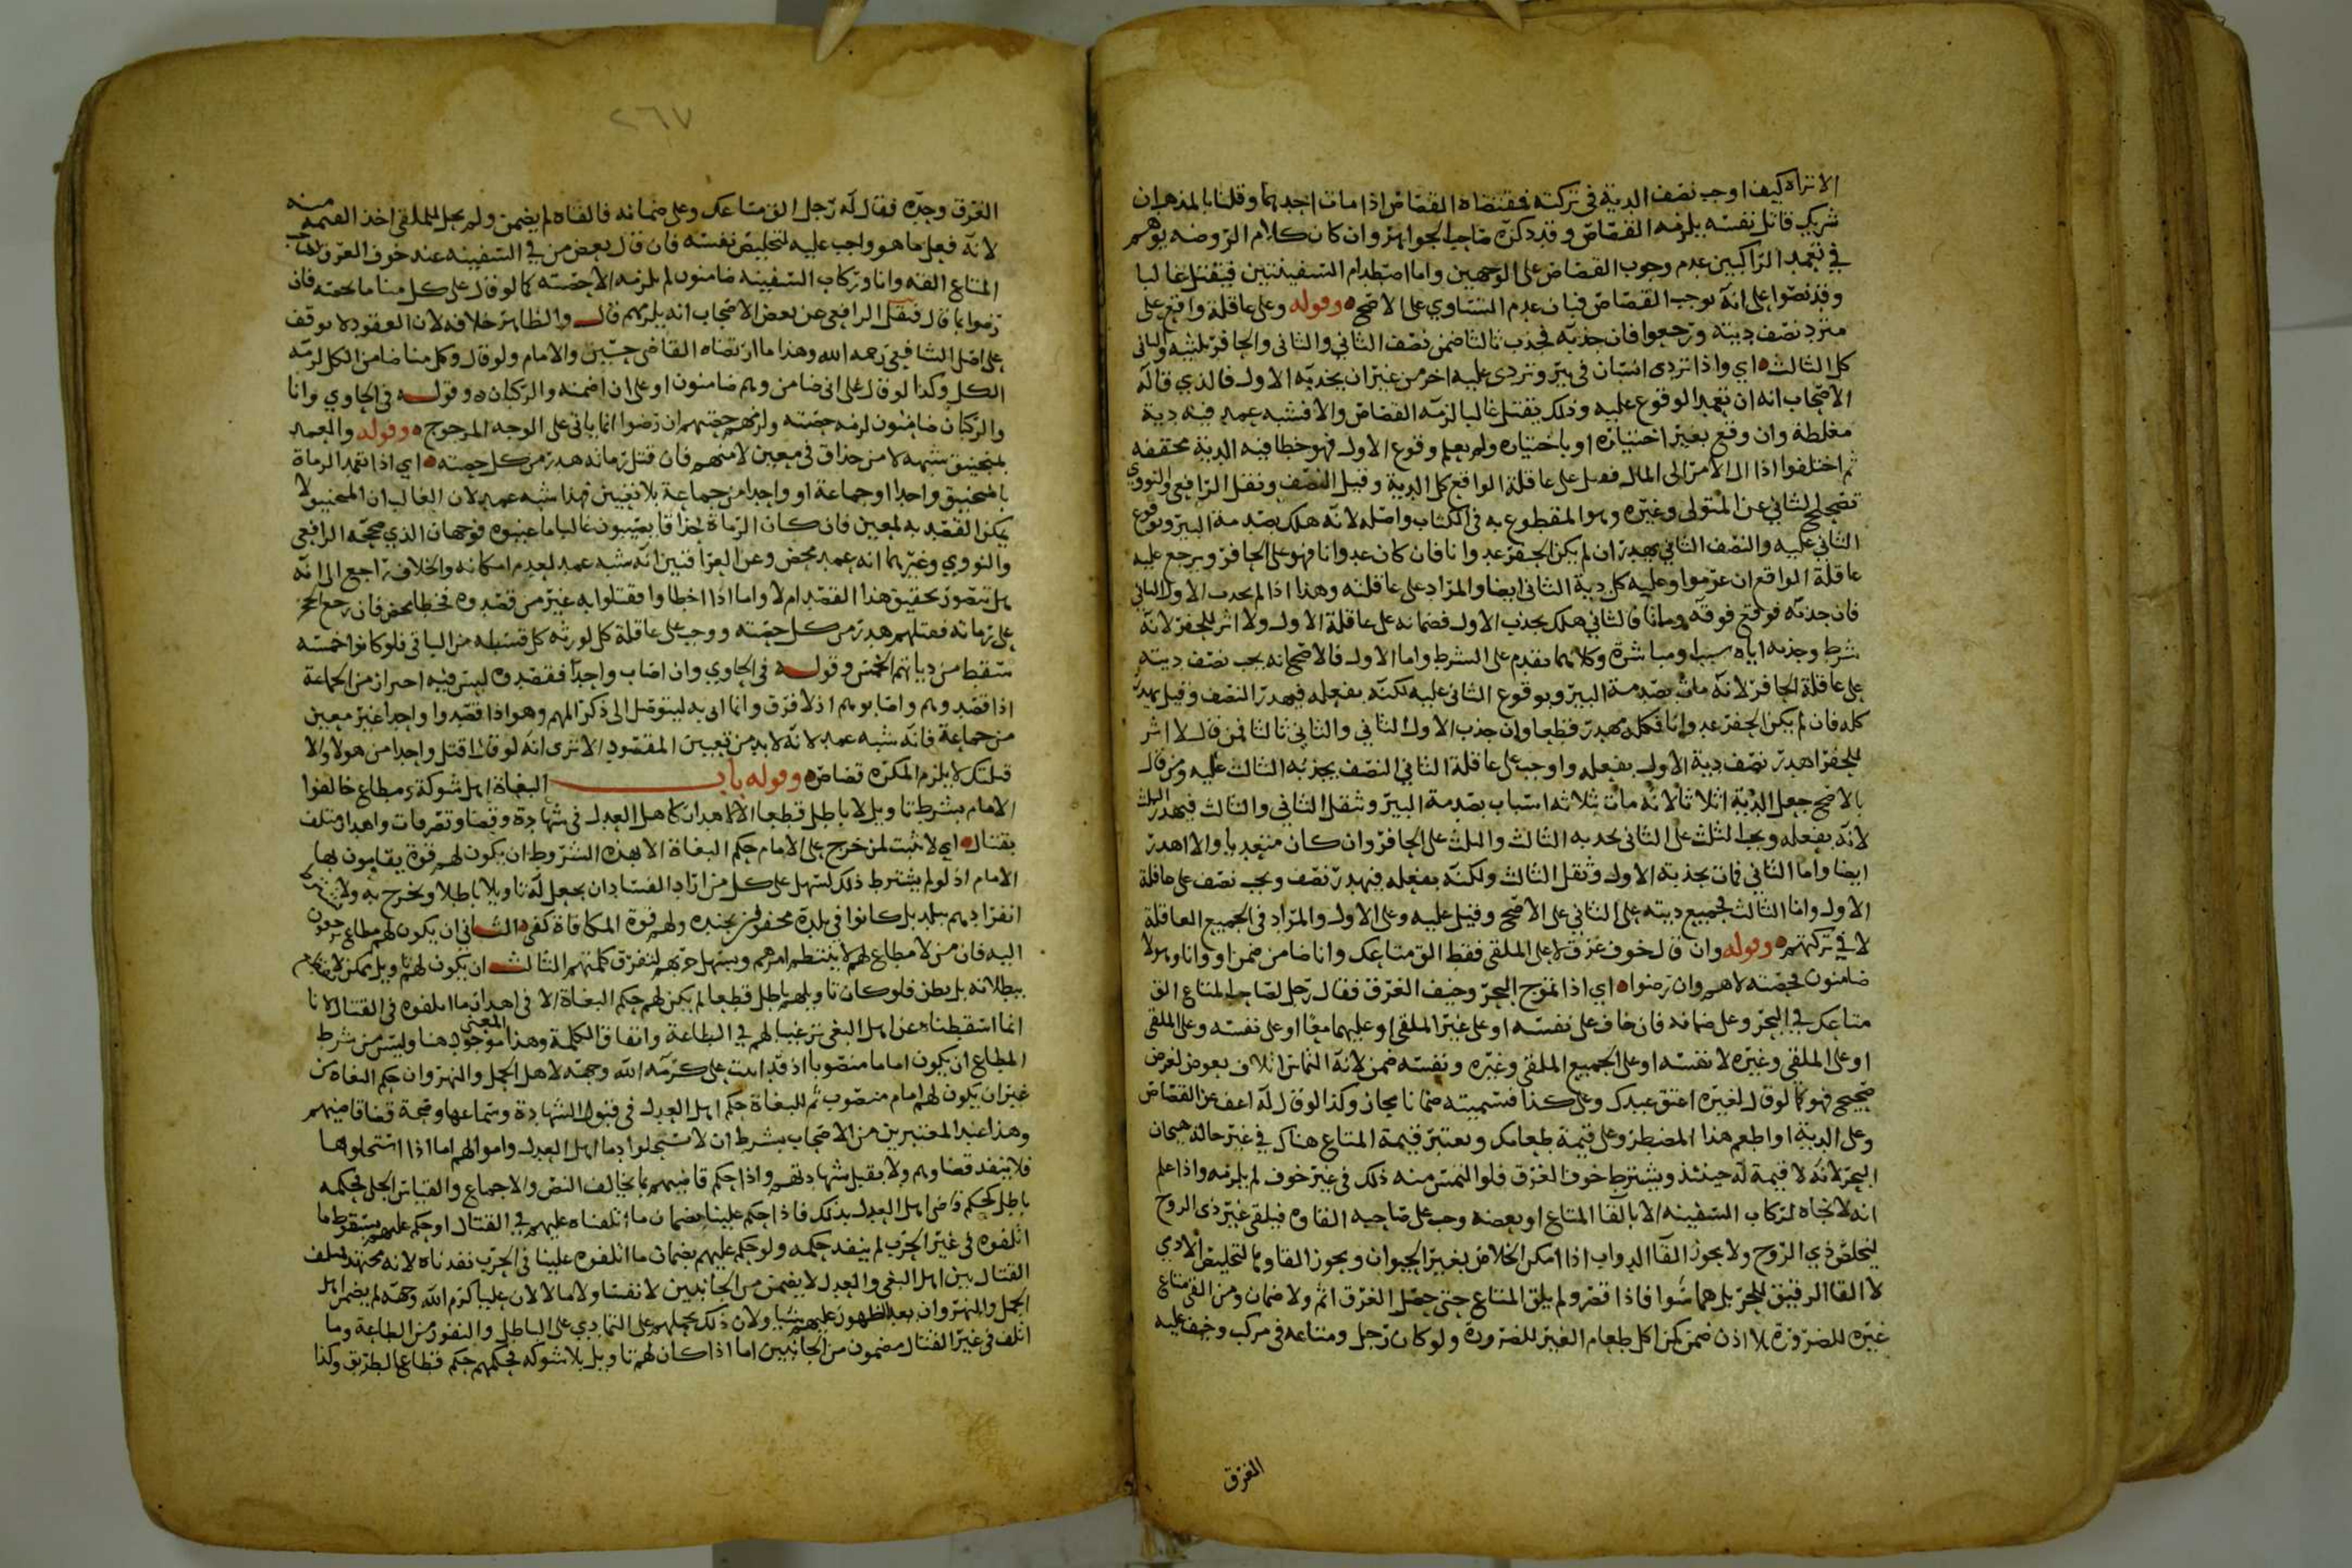 الا تراه كيف اوجب نصف الدية في تركته فمقتضاه القصاص اذا مات احدهما وقلنا بالمذهب ان
شريك قاتل نفسه يلزمه القصاص وقد ذكره صاحب الجواهر وان كان كلام الروضة يوهم
في تعمد الراكبين عدم وجوب القصاص على الوجهين واما اصطدام السفينتين فيقتل غالبا
وقد نصوا على انه يوجب القصاص فبان عدم التساوي على الاصح وقوله وعلى عاقلة واقع على
مترد نصف ديته ورجعوا فان جذبه فجذب ثالثا ضمن نصف الثاني والثاني والحافر ثلثيه والثاني
كل الثالث اي واذا تردى انسان في بير وتردى عليه اخر من غير ان يجذبه الاول فالذي قاله
الاصحاب انه ان تعمد الوقوع عليه وذلك يقتل غالبا لزمه القصاص والا فشبه عمد فيه دية
مغلظة وان وقع بغير اختياره او باختياره ولم يعلم وقوع الاول فهو خطا فيه الدية مخففه
ثم اختلفوا اذا ال الامر الى المال فعلى عاقلة الواقع كل الدية وقيل النصف ونقل الرافعي والنووي
تصحيح الثاني عن المتولي وغيره وهو المقطوع به في الكتاب واصله لانه هلك بصدمة البير وبوقوع
الثاني عليه والنصف الثاني يهدر ان لم يكن الحفر عدوانا فان كان عدوانا فهو على الحافر ويرجع عليه
عاقلة الواقع ان غرموا وعليه كل دية الثاني ايضا والمراد على عاقلته وهذا اذا لم يجذب الاول الثاني
فان جذبه فوقع فوقه وماتا فالثاني هلك بجذب الاول فضمانه على عاقلة الاول ولا اثر للحفر لانه
شرط وجذبه اياه سبب او مباشرة وكلاهما مقدم على الشرط واما الاول فالاصح انه يجب نصف ديته
على عاقلة الحافر لانه مات بصدمة البير وبوقوع الثاني عليه لكنه بفعله فيهدر النصف وقيل يهدر
كله فان لم يكن الحفر عدوانا فكله مهدر قطعا وان جذب الاول الثاني والثاني ثالثا فمن قال لا اثر
للحفر اهدر نصف دية الاول بفعله واوجب على عاقلة الثاني النصف بجذبه الثالث عليه ومن قال
بالاصح جعل الدية اثلاثا لانه مات بثلاثة اسباب بصدمة البير وثقل الثاني والثالث فيهدر الثلث
لانه بفعله ويجب الثلث على الثاني بجذبه الثالث والثلث على الحافر وان كان متعديا والا اهدر
ايضا واما الثاني فمات بجذبه الاول وثقل الثالث ولكنه بفعله فيهدر نصف ويجب نصف على عاقلة
الاول واما الثالث فجميع ديته على الثاني على الاصح وقيل عليه وعلى الاول والمراد في الجميع العاقلة
لا في تركتهم وقوله وان قال خوف غرق لا على الملقي فقط الق متاعك وانا ضامن ضمن او وانا وهولا
ضامنون فحصته لاهم وان رضوا اي اذا تموج البحر وخيف الغرق فقال رجل لصاحب المتاع الق
متاعك في البحر وعلي ضمانه فان خاف على نفسه او على غير الملقي او عليهما معا او على نفسه وعلى الملقي
او على الملقي وغيره لا نفسه او على الجميع الملقي وغيره ونفسه ضمن لانه التماس اتلاف بعوض لغرض
صحيح فهو كما لو قال لغيره اعتق عبدك وعلي كذا فتسميته ضمانا مجاز وكذا لو قال له اعف عن القصاص
وعلي الدية او اطعم هذا المضطر وعلي قيمة طعامك ويعتبر قيمة المتاع هناك في غير حالة هيجان
البحر لانه لا قيمة له حينئذ ويشترط خوف الغرق فلو التمس منه ذلك في غير خوف لم يلزمه واذا علم
انه لا نجاة لركاب السفينة الا بالقا المتاع او بعضه وجب على صاحبه القاوه فيلقي غير ذي الروح
لتخلص ذي الروح ولا يجوز القا الدواب اذا امكن الخلاص بغير الحيوان ويجوز القاوها لتخليص الادمي
لا القا الرقيق للحر بل هما سوا فاذا قصر ولم يلق المتاع حتى حصل الغرق اثم ولا ضمان ومن القى متاع
غيره للضرورة بلا اذن ضمن كمن اكل طعام الغير للضرورة ولو كان رجل ومتاعه في مركب وخيف عليه
الغرق
٢٦٧
الغرق وحده فقال له رجل الق متاعك وعلي ضمانه فالقاه لم يضمن ولم يحل للملقي اخذ القيمة منه
لانه فعل ما هو واجب عليه لتخليص نفسه فان قال بعض من في السفينة عند خوف الغرق لصاحب
المتاع القه وانا وركاب السفينة ضامنون لم يلزمه الا حصته كما لو قال على كل منا ما يخصه فان
رضوا بما قال فنقل الرافعي عن بعض الاصحاب انه يلزمهم قال والظاهر خلافه لان العقود لا توقف
على اصل الشافعي رحمه الله وهذا ما ارتضاه القاضي حسين والامام ولو قال وكل منا ضامن الكل لزمه
الكل وكذا لو قال على اني ضامن وهم ضامنون او على ان اضمنه والركبان وقوله في الحاوي وانا
والركبان ضامنون لزمه حصته ولزمهم حصتهم ان رضوا انما ياتي على الوجه المرجوح وقوله والعمد
بمنجنيق شبهه لا من حذاق في معين لا منهم فان قتل رماته هدر من كل حصته اي اذا تعمد الرماة
بالمنجنيق واحدا او جماعة او واحدا من جماعة بلا تعيين فهذا شبه عمد لان الغالب ان المنجنيق لا
يمكن القصد به لمعين فان كان الرماة حذاقا يصيبون غالبا ما عينوه فوجهان الذي صححه الرافعي
والنووي وغيرهما انه عمد محض وعن العراقيين انه شبه عمد لعدم امكانه والخلاف راجع الى انه
هل يتصور تحقيق هذا القصد ام لا واما اذا اخطاوا فقتلوا به غير من قصدوه فخطا محض فان رجع الحجر
على رماته فقتلهم هدر من كل حصته ووجب على عاقلة كل لورثه كل قسطه من الباقي فلو كانوا خمسة
سقط من دياتهم الخمس وقوله في الحاوي وان اصاب واحدا فقصدوه ليس فيه احتراز من الجماعة
اذا قصدوهم واصابوهم اذ لا فرق وانما اتى به ليتوصل الى ذكر المهم وهو اذا قصدوا واحدا غير معين
من جماعة فانه شبه عمد لانه لا بد من تعيين المقصود الا ترى انه لو قال اقتل واحدا من هولا والا
قتلتك لا يلزم المكره قصاص وقوله باب البغاة اهل شوكة ومطاع خالفوا
الامام بشرط تاويل لا باطل قطعا الا لاهدار كاهل العدل في شهادة وقضا وتصرفات واهدار متلف
بقتال اي لا يثبت لمن خرج على الامام حكم البغاة الا بهذه الشروط ان يكون لهم قوة يقاومون بها
الامام اذ لو لم يشترط ذلك لسهل على كل من اراد الفساد ان يجعل له تاويلا باطلا ويخرج به ولا يشترط
انفرادهم ببلد بل كانوا في بلدة محفوفين بجنده ولهم قوة المكافاة كفى الثاني ان يكون لهم مطاع يرجعون
اليه فان من لا مطاع لهم لا ينتظم امرهم ويسهل حربهم لتفرق كلمتهم الثالث ان يكون لهم تاويل يمكن لا يقطع
ببطلانه بل يظن فلو كان تاويلهم باطل قطعا لم يكن لهم حكم البغاة الا في اهدار ما اتلفوه في القتال لانا
انما اسقطناه عن اهل البغي ترغيبا لهم في الطاعة واتفاق الكلمة وهذا المعنى موجود هنا وليس من شرط
المطاع ان يكون اماما منصوبا اذ قد اثبت علي كرم الله وجهه لاهل الجمل والنهروان حكم البغاة من
غير ان يكون لهم امام منصوب ثم للبغاة حكم اهل العدل في قبول الشهادة وسماعها وصحة قضا قاضيهم
وهذا عند المعتبرين من الاصحاب بشرط ان لا يستحلوا دما اهل العدل واموالهم اما اذا استحلوها
فلا ينفذ قضاوهم ولا يقبل شهادتهم واذا حكم قاضيهم بما يخالف النص والاجماع والقياس الجلي فحكمه
باطل كحكم قاضي اهل العدل بذلك فاذا حكم علينا بضمان ما اتلفناه عليهم في القتال او حكم عليهم بسقوط ما
اتلفوه في غير الحرب لم ينفذ حكمه ولو حكم عليهم بضمان ما اتلفوه علينا في الحرب نفذناه لانه مجتهد فيه
القتال بين اهل البغي والعدل لا يضمن من الجانبين لا نفسا ولا مالا لان عليا كرم الله وجهه لم يضمن اهل
الجمل والنهروان بعد الظهور عليهم شيا ولان ذلك يحملهم على التمادي على الباطل والنفور من الطاعة وما
اتلف في غير القتال مضمون من الجانبين اما اذا كان لهم تاويل بلا شوكة فحكمهم حكم قطاع الطريق وكذا